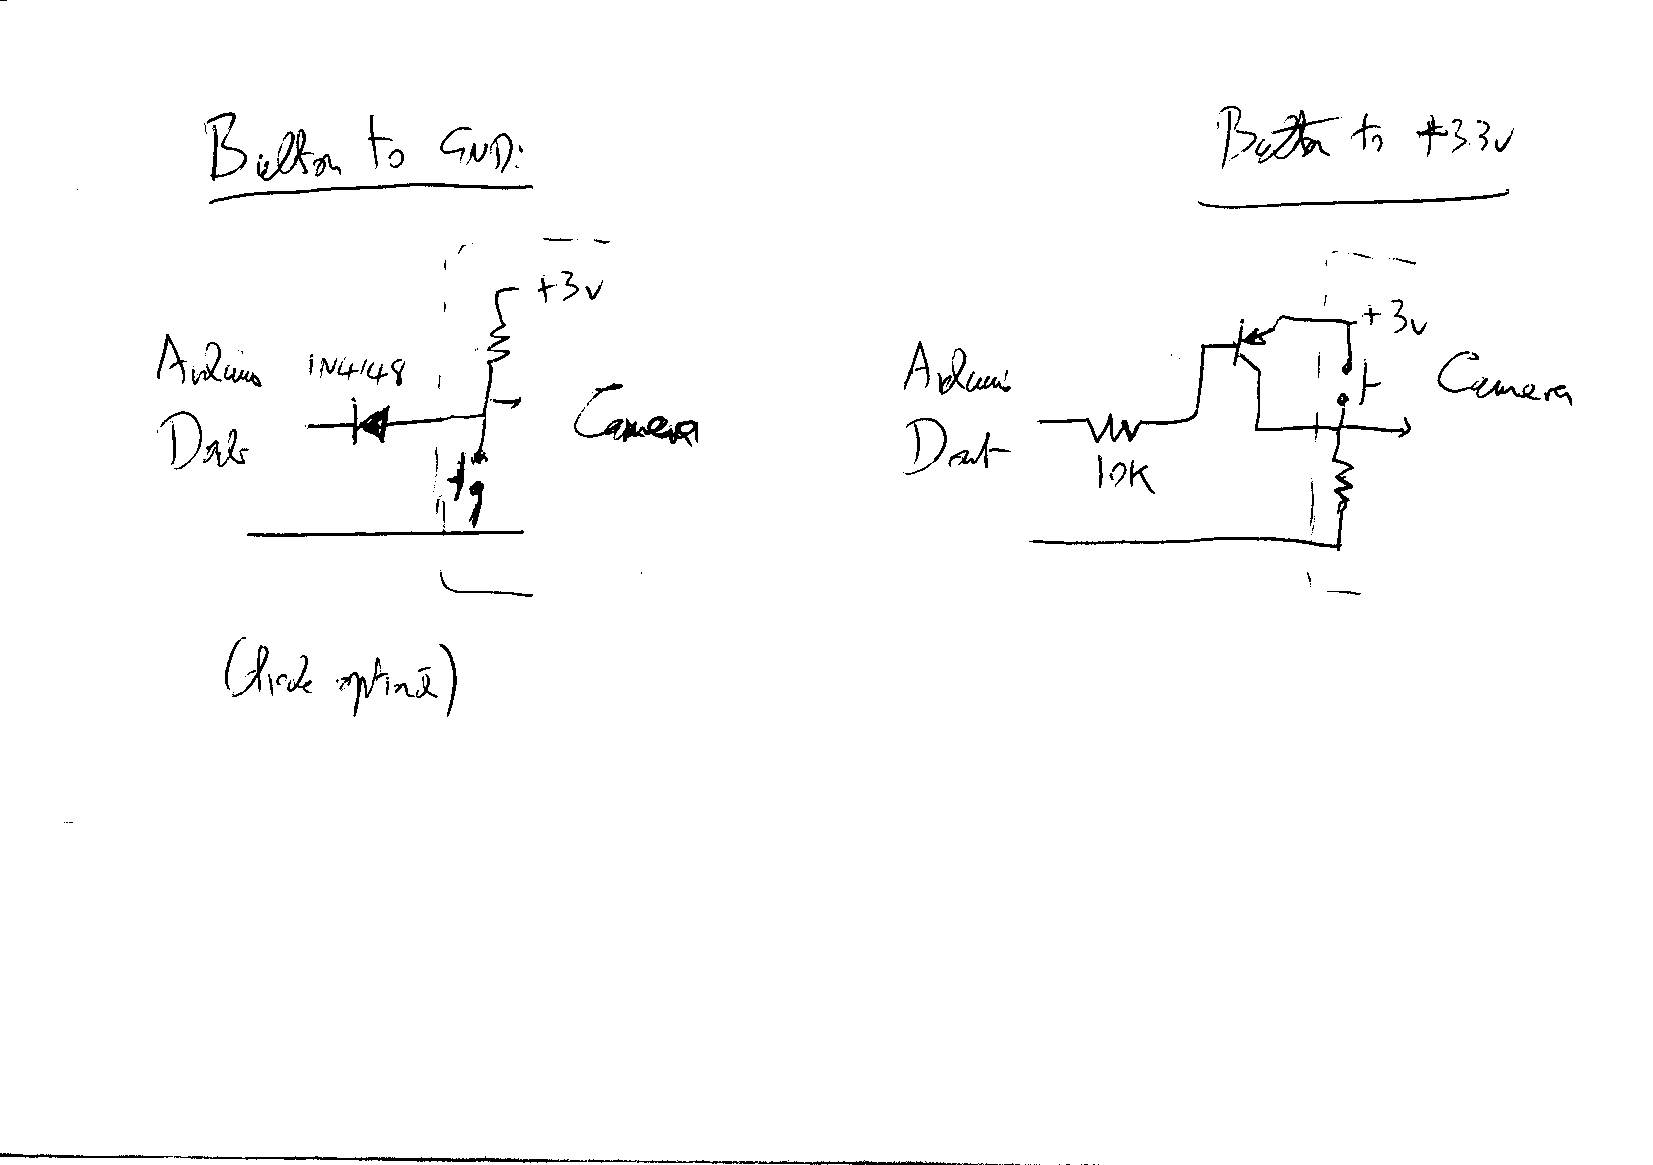 Button to GND.
+3v
Arduino 1N4148
Dout
Camera
(diode optional)
Button to +3.3v
+3v
Arduino
Camera
Dout
10K